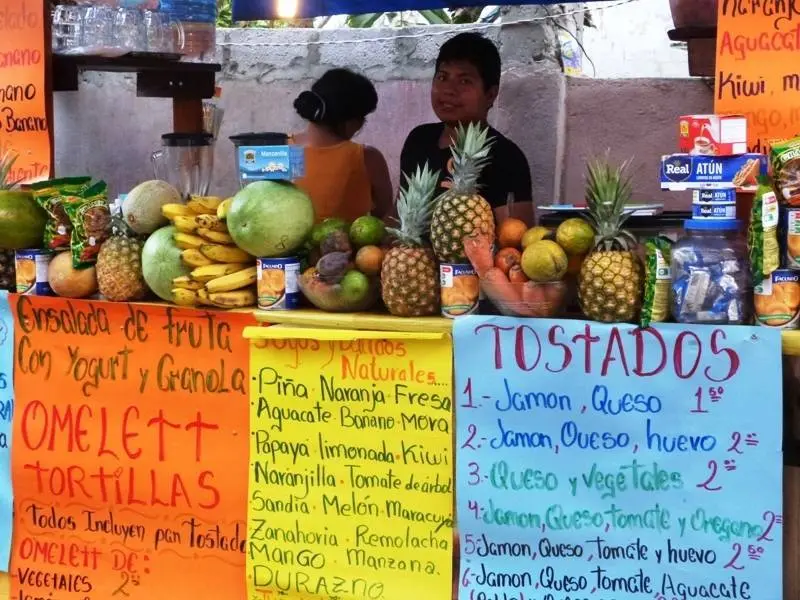 nano
Banano
Naranjo
Aguacat
Kiwi, m
Manzanilla
Real ATÚN
Real
ATÚN
FACUNDO
FACUNDO
FACUNDO
FACUNDO
Ensalada de fruta
Con Yogurt y Granola
OMELETT
TORTILLAS
Todos Incluyen pan Tostado
OMELETT DE:
-VEGETALES 2
Naturales...
·Piña·Naranja·Fresa
·Aguacate·Banano·Mora
·Papaya·limonada·Kiwi
·Naranjilla·Tomate de árbol
·Sandia·Melón·Maracuya
·Zanahoria·Remolacha
·Mango·Manzana.
·DURAZNO
TOSTADOS
1.- Jamon, Queso 1 50
2.- Jamon, Queso, huevo 2
3.- Queso y vegetales 2
4.- Jamon, Queso, tomate y Oregano 2
5.- Jamon, Queso, tomate y huevo 2 50
6.- Jamon, Queso, Tomate, Aguacate